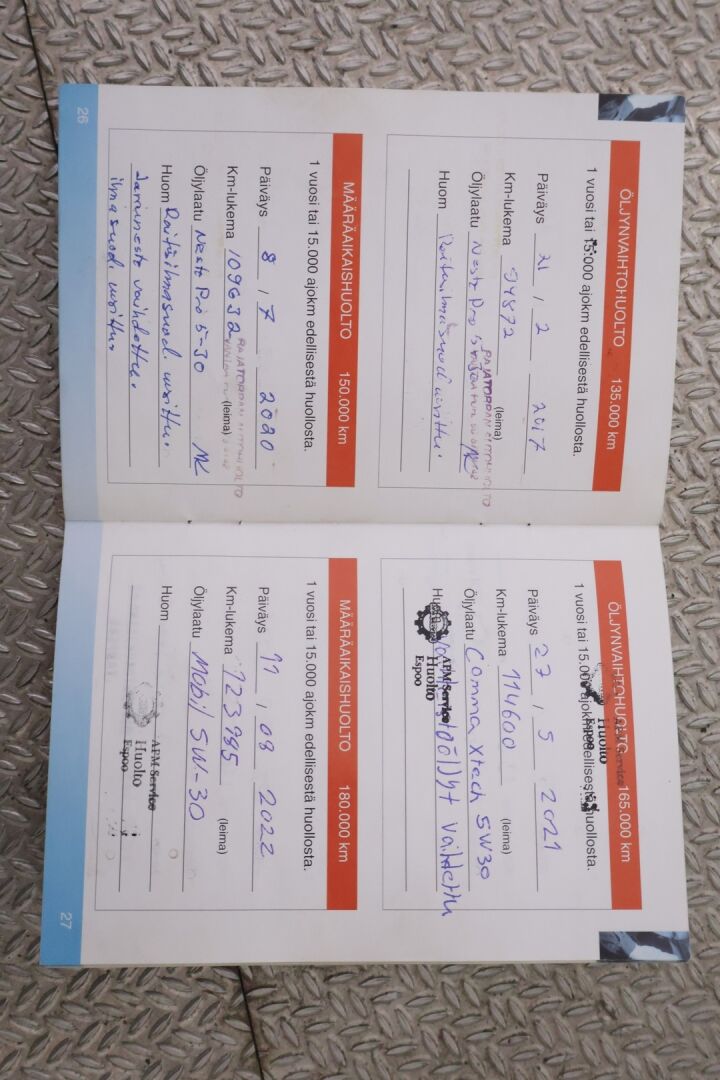 ÖLJYNVAIHTOHUOLTO 135.000 km
1 vuosi tai 15.000 ajokm edellisestä huollosta.
Päiväys 21 / 2 2017
Km-lukema 94872 (leima)
RAJATORPAN AUTOHUOLTO
Öljylaatu Neste Pro
Huom Raitisilmasuod. uusittu.
MÄÄRÄAIKAISHUOLTO 150.000 km
1 vuosi tai 15.000 ajokm edellisestä huollosta.
Päiväys 8 / 7 2020
RAJATORPAN AUTOHUOLTO
Km-lukema 109632 (leima)
Öljylaatu Neste Pro 5-30
Huom Raitisilmasuod. uusittu.
Jarruneste vaihdettu.
ilmasuod. uusittu.
26
ÖLJYNVAIHTOHUOLTO 165.000 km
APM Service
Huolto
Espoo
1 vuosi tai 15.000 ajokm edellisestä huollosta.
Päiväys 27 / 5 2021
Km-lukema 114600 (leima)
Öljylaatu Comma Xtech 5W30
Huom öljyt vaihdettu
APM Service
Huolto
Espoo
MÄÄRÄAIKAISHUOLTO 180.000 km
1 vuosi tai 15.000 ajokm edellisestä huollosta.
Päiväys 11 / 08 2022
Km-lukema 123795 (leima)
Öljylaatu Mobil 5W-30
Huom
APM Service
Huolto
Espoo
27